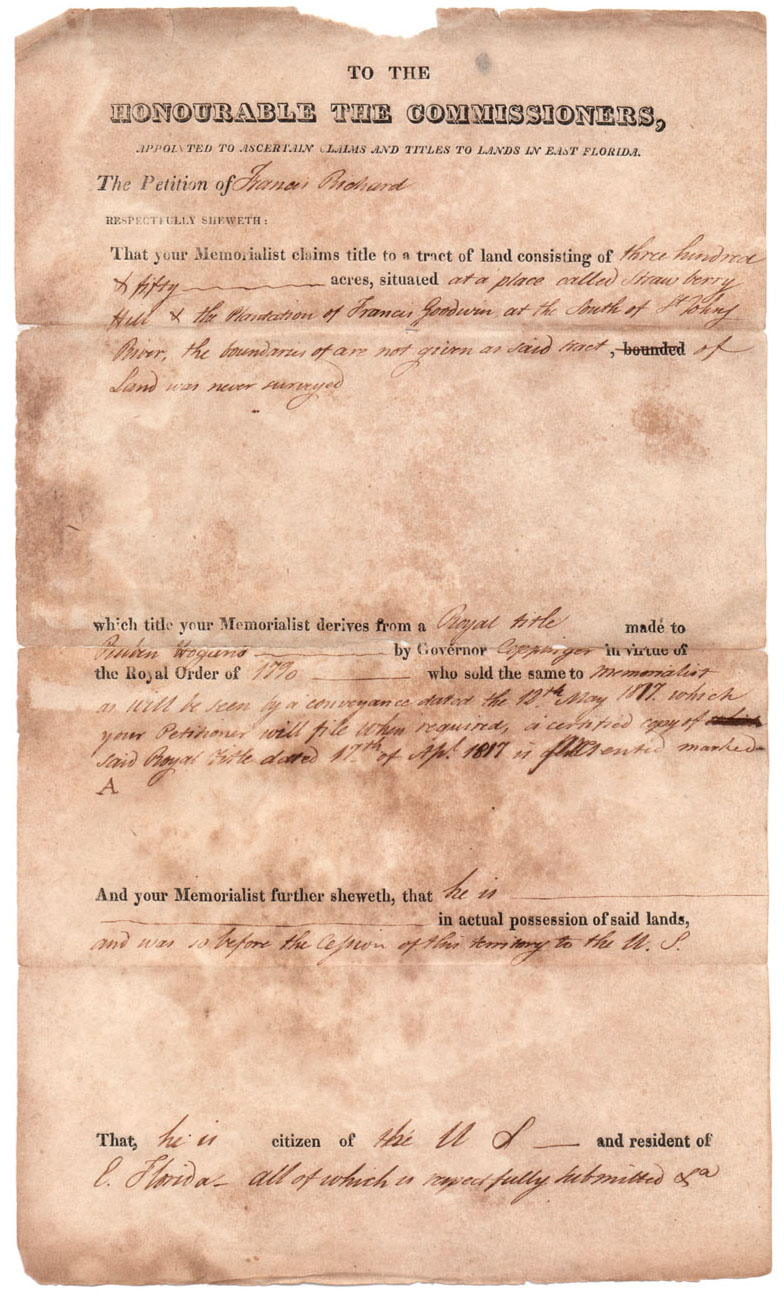 TO THE
HONOURABLE THE COMMISSIONERS,
APPOINTED TO ASCERTAIN CLAIMS AND TITLES TO LANDS IN EAST FLORIDA.
The Petition of Francis Richard
RESPECTFULLY SHEWETH:
That your Memorialist claims title to a tract of land consisting of three hundred
& fifty acres, situated at a place called Straw berry
Hill & the Plantation of Francis Goodwin at the South of St Johns
River, the boundaries of are not given as said tract, bounded of
Land was never surveyed
which title your Memorialist derives from a Royal title made to
Reuben Hogans by Governor Coppinger in virtue of
the Royal Order of 1790 who sold the same to Memorialist
as will be seen by a conveyance dated the 12th May 1817. which
your Petitioner will file when required, a certified copy of
said Royal Title dated 17th of Apl. 1817 is presented marked
A
And your Memorialist further sheweth, that he is
in actual possession of said lands,
and was so before the Cession of this territory to the U. S.
That, he is citizen of the U S and resident of
E. Florida - all of which is respectfully submitted &a